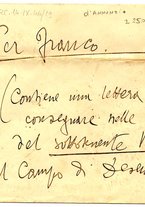 d'Annunz
Per Franco.
(Contiene una lettera
consegnare nelle
del sottotenente
l Campo di